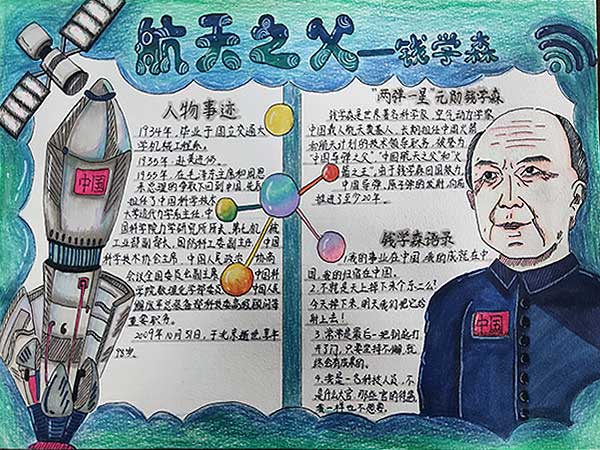 航天之父—钱学森
中国
人物事迹
1934年,毕业于国立交通大
学机械工程系。
1935年,赴美进修。
1955年,在毛泽东主席和周恩
来总理的争取下回到中国,先后
担任了中国科学技术
大学近代力学系主任,中
国科学院力学研究所所长、第七机械
工业部副部长、国防科工委副主任、中国
科学技术协会主席、中国人民政治协商
会议全国委员会副主席、中国科
学院数理化学部委员、中国人民
解放军总装备部科技委高级顾问等
重要职务。
2009年10月31日,于北京逝世,享年
98岁。
“两弹一星”元勋钱学森
钱学森是世界著名科学家,空气动力学家,
中国载人航天奠基人,长期担任中国火箭
和航天计划的技术领导职务,被誉为
“中国导弹之父”“中国航天之父”和“火
箭之王”,由于钱学森回国效力,
中国导弹、原子弹的发射,向前
推进了至少20年。
钱学森语录
1.我的事业在中国,我的成就在中
国,我的归宿在中国。
2.不就是天上掉下来个东西么!
今天掉下来,明天我们把它给
射上去!
3.常常是最后一把钥匙打
开了门,只要坚持不懈,就
终会有成果的。
4.我是一名科技人员,不
是什么大官,那些官的待遇,
我一样也不想要。
中国